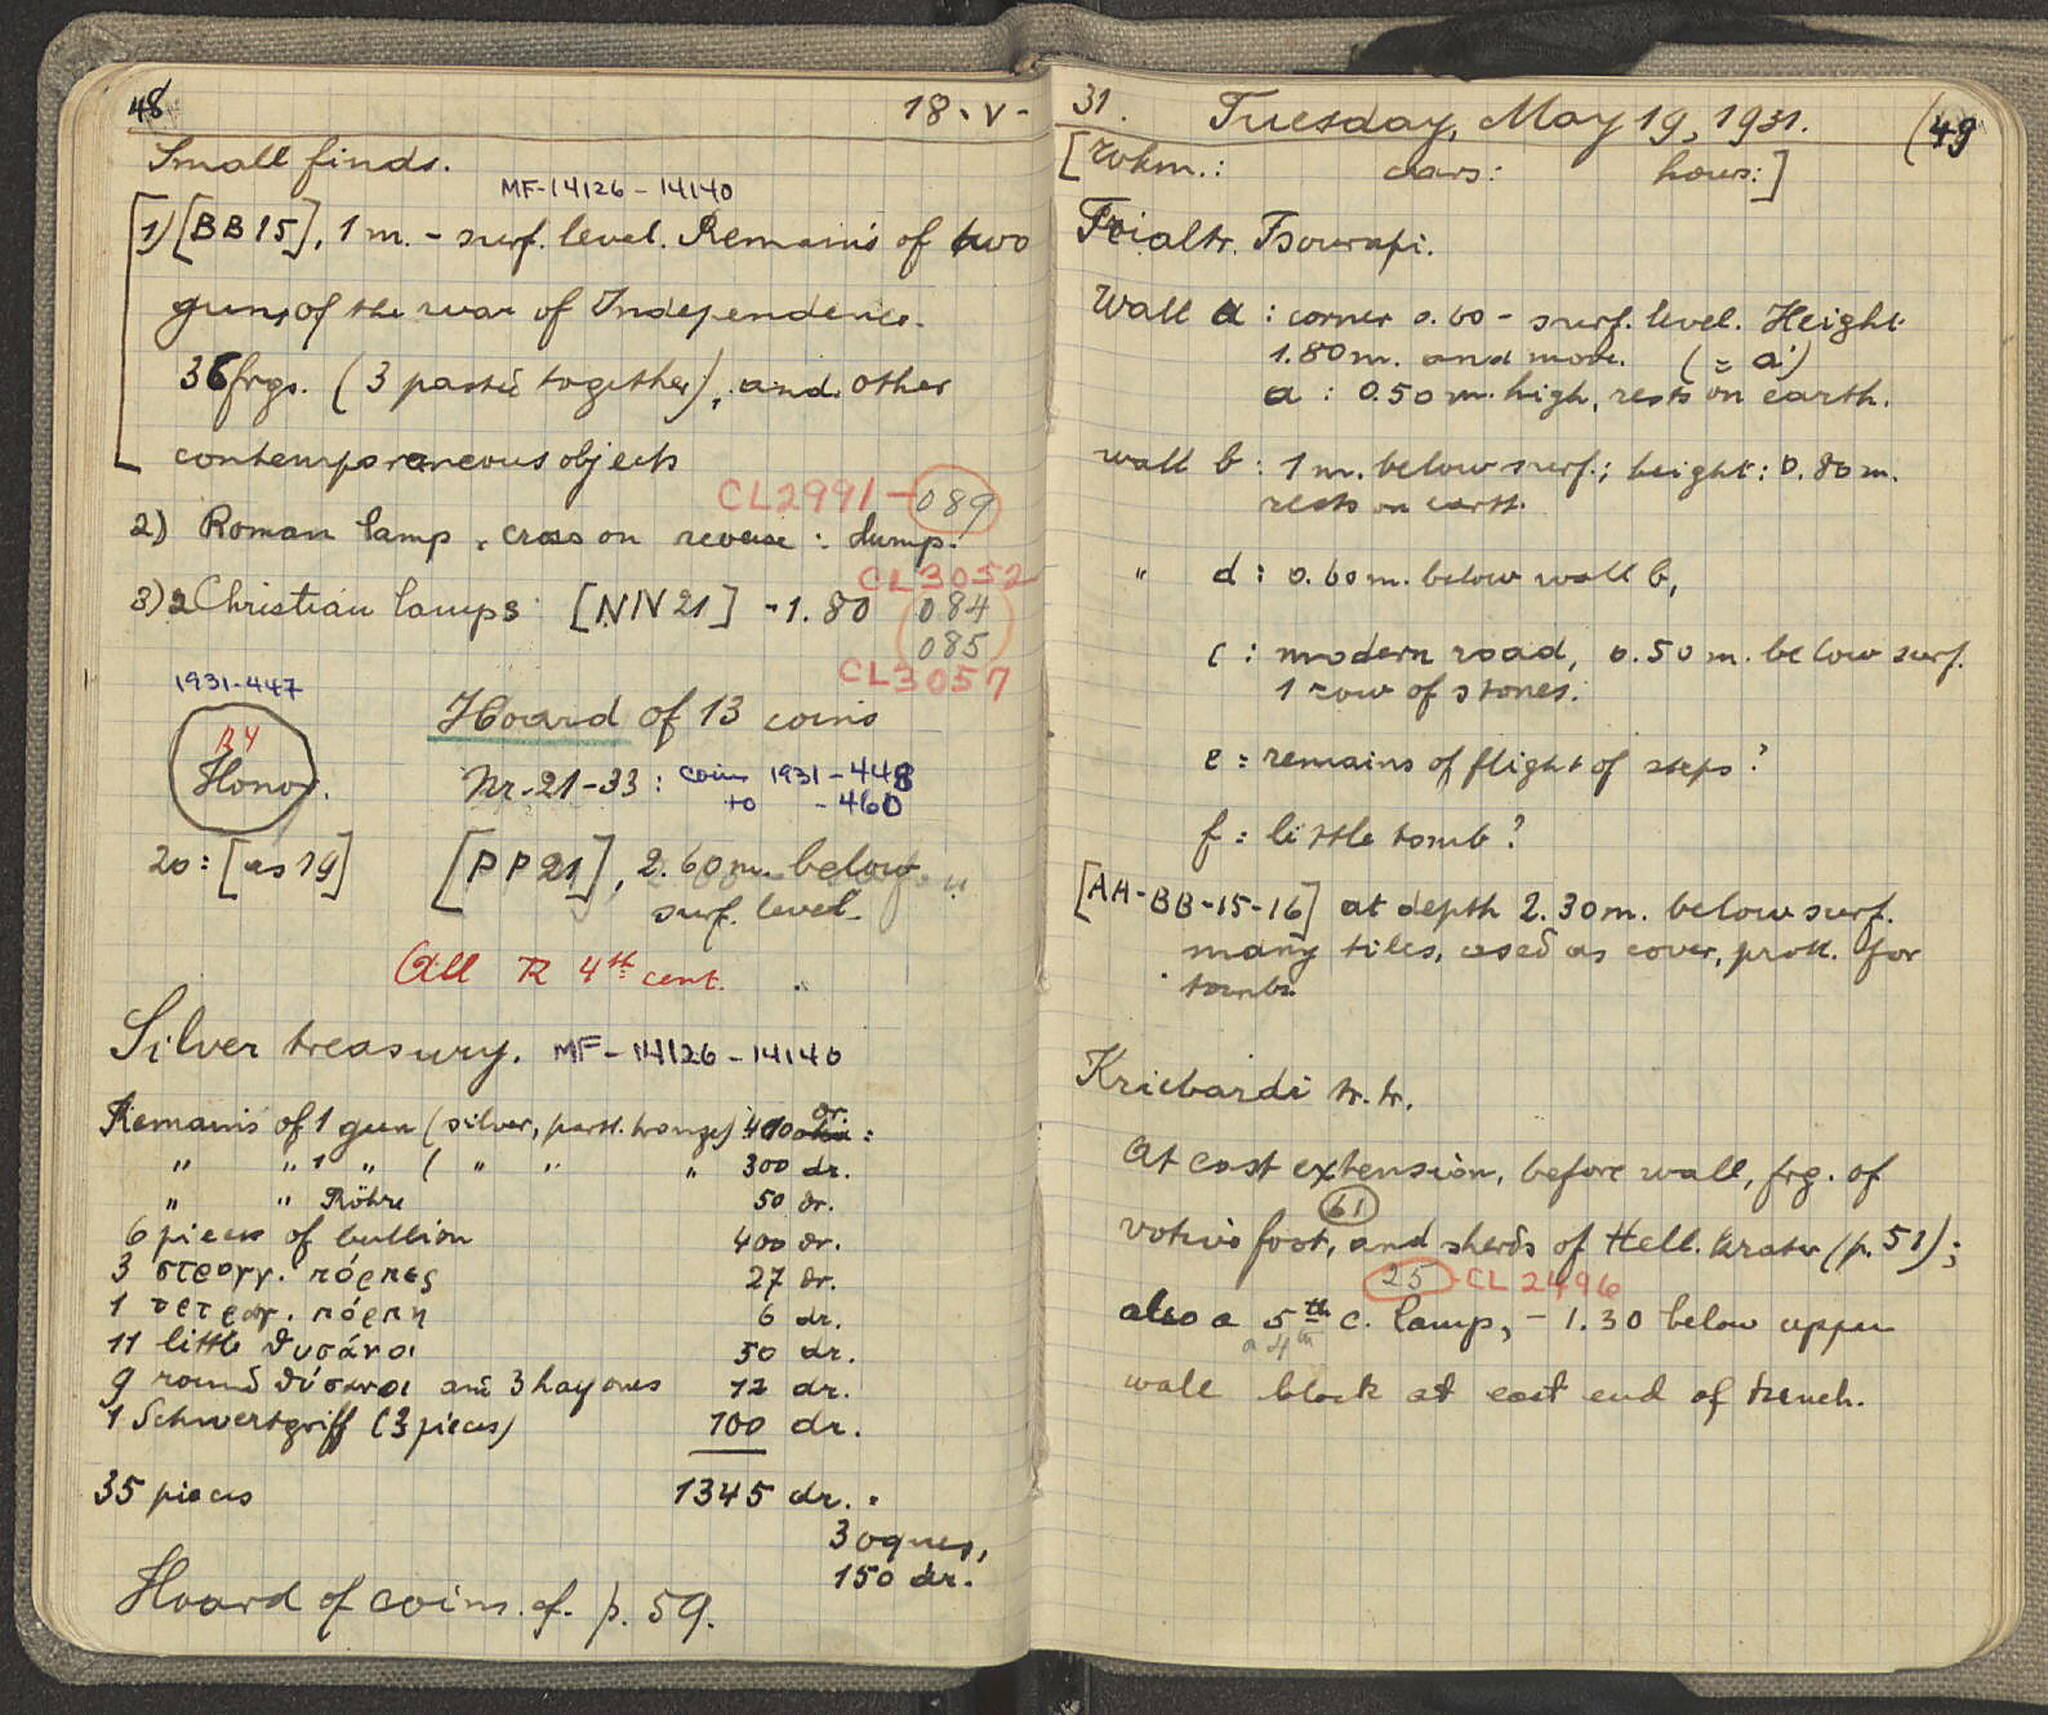 48
18.V-
Small finds.
MF-14126-14140
1) [BB15], 1 m. - surf. level. Remains of two
guns of the war of Independence.
36 frgs. (3 pasted together), and other
contemporaneous objects
CL2991-089
2) Roman lamp, cross on reverse: dump.
CL3052
3) 2 Christian lamps [NN21] -1.80 084
085
CL3057
1931-447
R4
Honor.
20: [as 19]
Hoard of 13 coins
Nr. 21-33: coins 1931-448
to -460
[PP21], 2.60 m. below
surf. level.
All R 4th cent.
Silver treasury. MF-14126-14140
Remains of 1 gun (silver, partl. bronze) 400 dr.:
" " 1 " ( " " " 300 dr.
" " Röhre 50 dr.
6 pieces of bullion 400 dr.
3 στρογγ. πόρπες 27 dr.
1 τετραγ. πόρπη 6 dr.
11 little θυσάνοι 50 dr.
9 round θύσανοι and 3 hayones 12 dr.
1 Schwertgriff (3 pieces) 100 dr.
35 pieces 1345 dr.
3 oques,
150 dr.
Hoard of coins cf. p. 59.
31. Tuesday, May 19, 1931. (49
[wkm.: cars: hours:]
Trialtr. Tsourapi.
Wall a: corner 0.60 - surf. level. Height
1.80 m. and more. (= a')
a: 0.50 m. high, rests on earth.
wall b: 1 m. below surf.; height: 0.80 m.
rests on earth.
" d: 0.60 m. below wall b,
c: modern road, 0.50 m. below surf.
1 row of stones.
e = remains of flight of steps?
f = little tomb?
[AA-BB-15-16] at depth 2.30 m. below surf.
many tiles, used as cover, prob. for
tomb.
Kriebardi tr. tr.
At east extension, before wall, frg. of
61
votive foot, and sherds of Hell. krater (p. 51);
25 CL 2496
also a 5th c. lamp, - 1.30 below upper
a 4th
wall block at east end of trench.